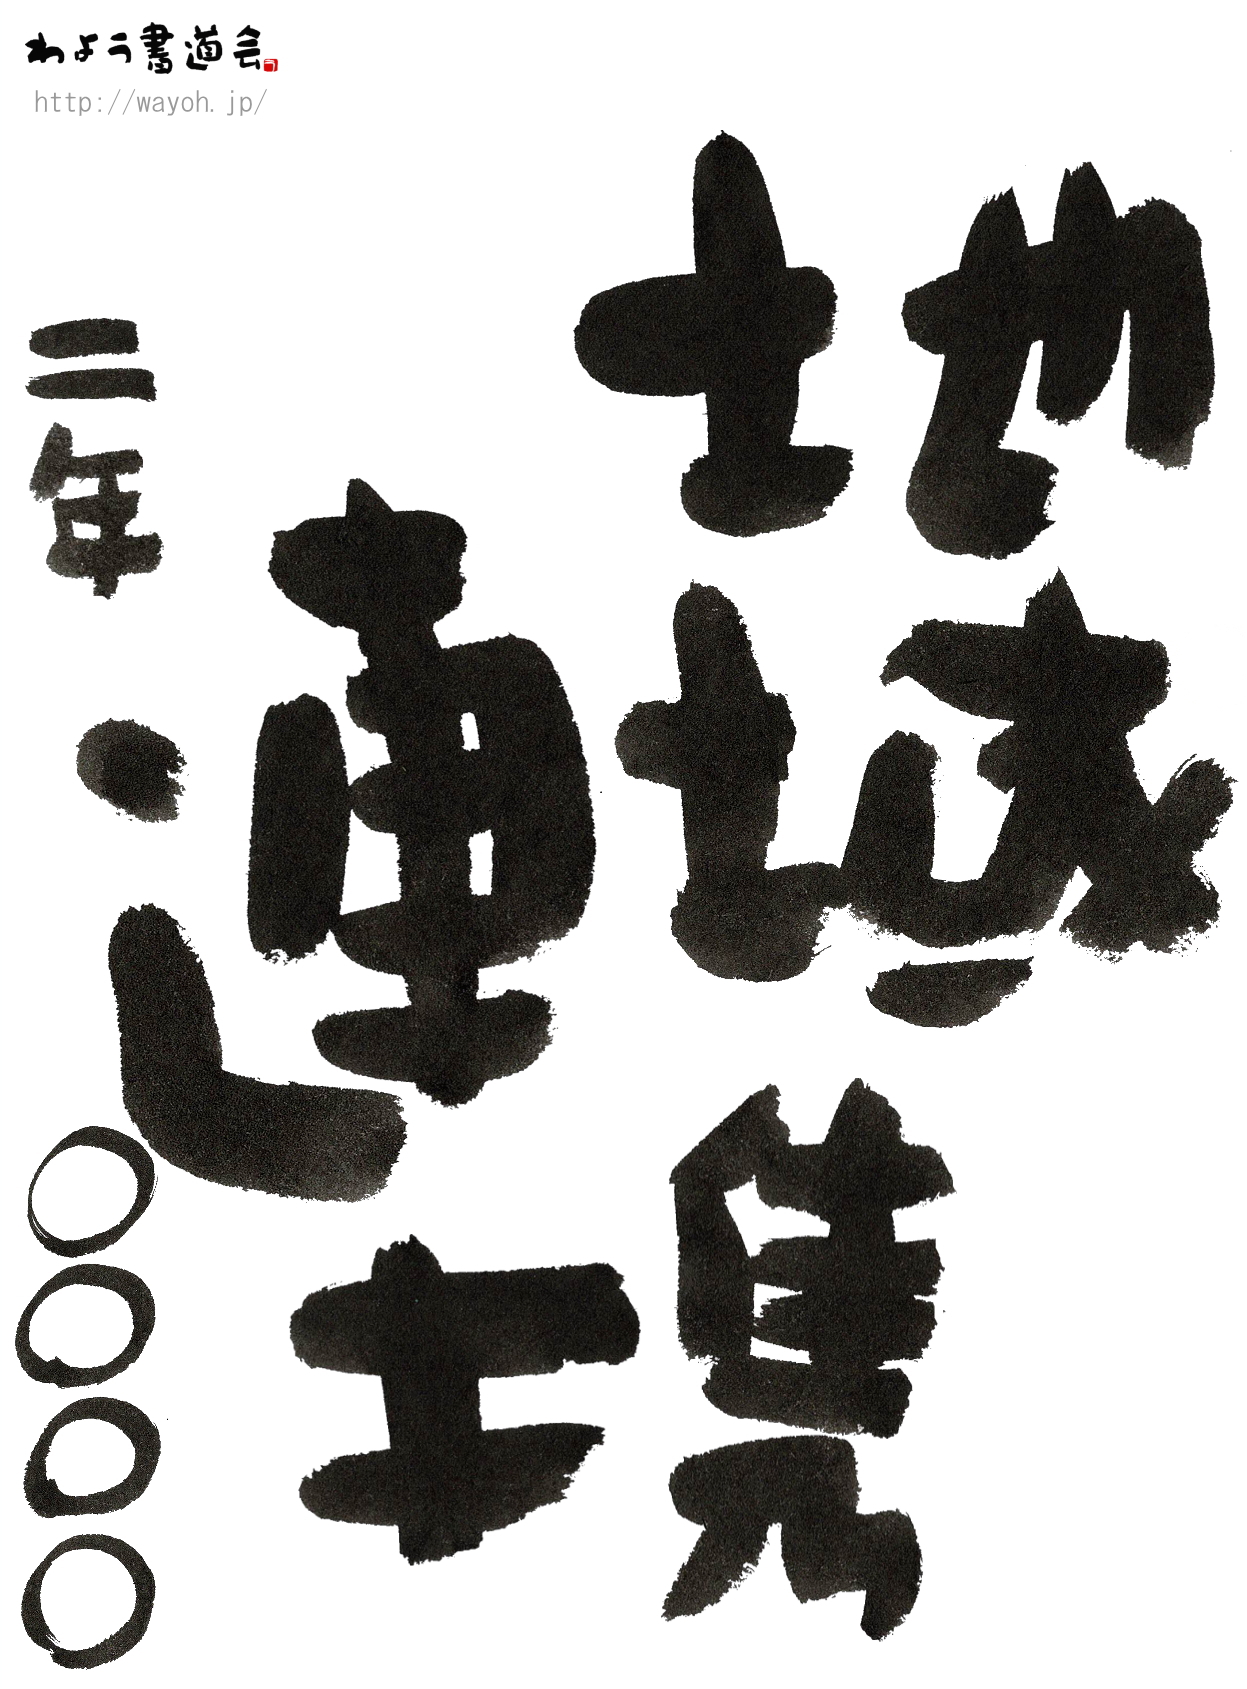 わよう書道会
http://wayoh.jp/
地域
連携
二年 〇〇〇〇